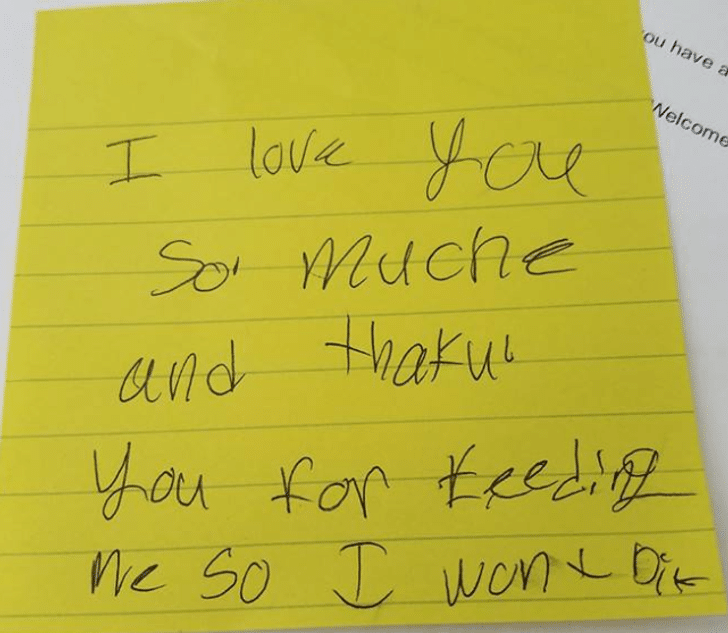 I love you
ou have a
Welcome
So muche
and thaku
you for feeding
me so I wont Die